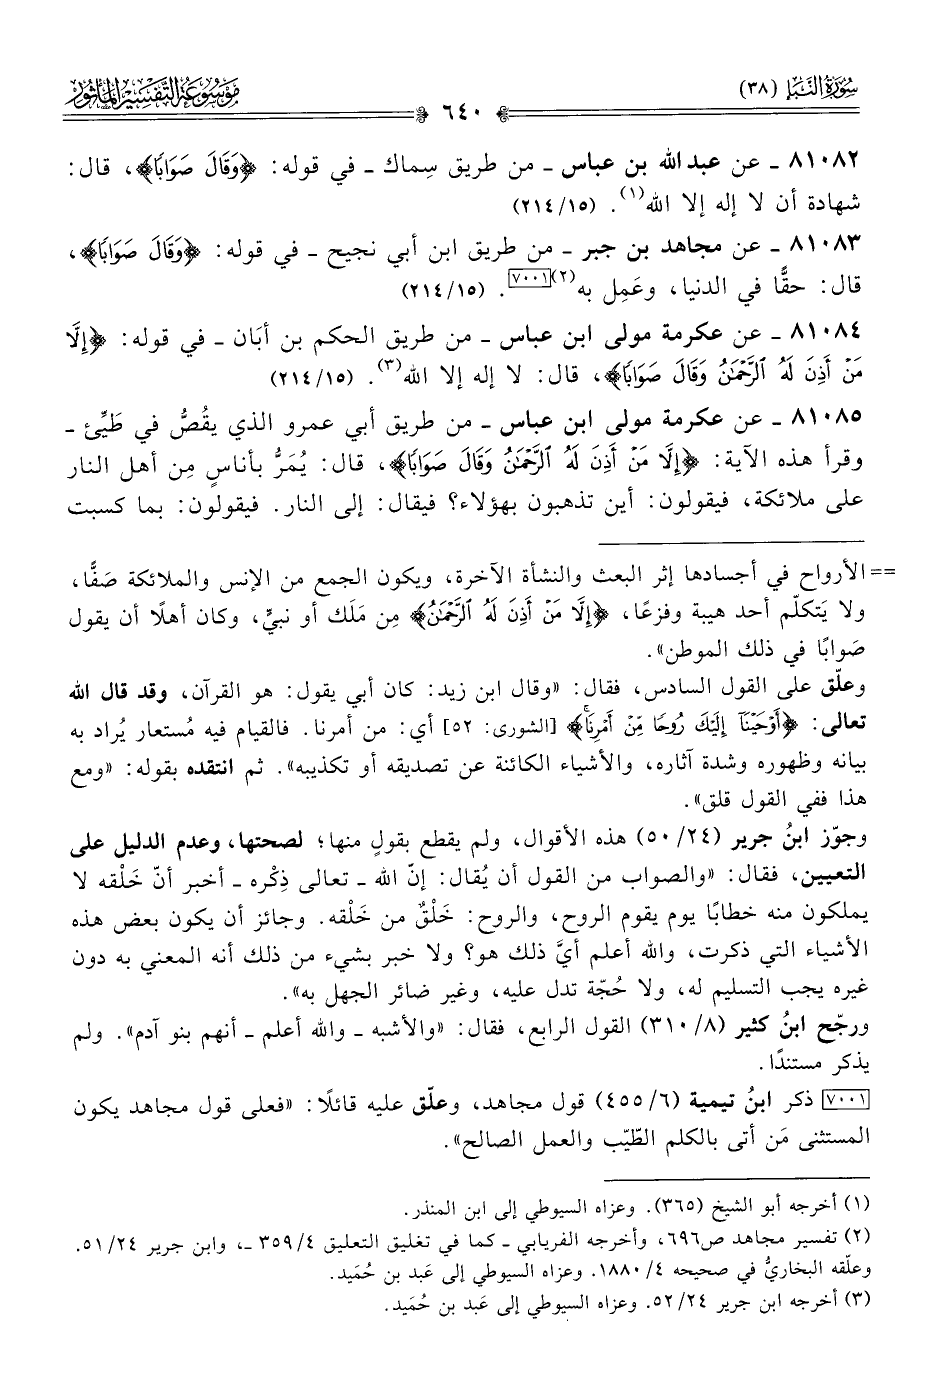 سُورَةُ النَّبَإِ (٣٨)
مَوْسُوعَةُ التَّفْسِيرِ المَأْثُور
٦٤٠
٨١٠٨٢ ـ عن عبد الله بن عباس ـ من طريق سِماك ـ في قوله: ﴿وَقَالَ صَوَابًا﴾، قال:
شهادة أن لا إله إلا الله(١). (٢١٤/١٥)
٨١٠٨٣ ـ عن مجاهد بن جبر ـ من طريق ابن أبي نجيح ـ في قوله: ﴿وَقَالَ صَوَابًا﴾،
قال: حقًّا في الدنيا، وعَمِل به(٢)[٧٠٠١]. (٢١٤/١٥)
٨١٠٨٤ ـ عن عكرمة مولى ابن عباس ـ من طريق الحكم بن أبَان ـ في قوله: ﴿إِلَّا
مَنْ أَذِنَ لَهُ ٱلرَّحْمَٰنُ وَقَالَ صَوَابًا﴾، قال: لا إله إلا الله(٣). (٢١٤/١٥)
٨١٠٨٥ ـ عن عكرمة مولى ابن عباس ـ من طريق أبي عمرو الذي يقُصُّ في طَيِّئ ـ
وقرأ هذه الآية: ﴿إِلَّا مَنْ أَذِنَ لَهُ ٱلرَّحْمَٰنُ وَقَالَ صَوَابًا﴾، قال: يُمَرُّ بأناسٍ مِن أهل النار
على ملائكة، فيقولون: أين تذهبون بهؤلاء؟ فيقال: إلى النار. فيقولون: بما كسبت
== الأرواح في أجسادها إثر البعث والنشأة الآخرة، ويكون الجمع من الإنس والملائكة صَفًّا،
ولا يَتكلّم أحد هيبة وفزعًا، ﴿إِلَّا مَنْ أَذِنَ لَهُ ٱلرَّحْمَٰنُ﴾ مِن مَلَك أو نبيٍّ، وكان أهلًا أن يقول
صَوابًا في ذلك الموطن».
وعلّق على القول السادس، فقال: «وقال ابن زيد: كان أبي يقول: هو القرآن، وقد قال الله
تعالى: ﴿أَوْحَيْنَآ إِلَيْكَ رُوحًا مِّنْ أَمْرِنَا﴾ [الشورى: ٥٢] أي: من أمرنا. فالقيام فيه مُستعار يُراد به
بيانه وظهوره وشدة آثاره، والأشياء الكائنة عن تصديقه أو تكذيبه». ثم انتقده بقوله: «ومع
هذا ففي القول قلق».
وجوّز ابنُ جرير (٥٠/٢٤) هذه الأقوال، ولم يقطع بقولٍ منها؛ لصحتها، وعدم الدليل على
التعيين، فقال: «والصواب من القول أن يُقال: إنّ الله ـ تعالى ذِكْره ـ أخبر أنّ خَلْقه لا
يملكون منه خطابًا يوم يقوم الروح، والروح: خَلْقٌ من خَلْقه. وجائز أن يكون بعض هذه
الأشياء التي ذكرت، والله أعلم أيَّ ذلك هو؟ ولا خبر بشيء من ذلك أنه المعني به دون
غيره يجب التسليم له، ولا حُجّة تدل عليه، وغير ضائر الجهل به».
ورجّح ابنُ كثير (٣١٠/٨) القول الرابع، فقال: «والأشبه ـ والله أعلم ـ أنهم بنو آدم». ولم
يذكر مستندًا.
[٧٠٠١] ذكر ابنُ تيمية (٤٥٥/٦) قول مجاهد، وعلّق عليه قائلًا: «فعلى قول مجاهد يكون
المستثنى مَن أتى بالكلم الطّيّب والعمل الصالح».
(١) أخرجه أبو الشيخ (٣٦٥). وعزاه السيوطي إلى ابن المنذر.
(٢) تفسير مجاهد ص٦٩٦، وأخرجه الفريابي ـ كما في تغليق التعليق ٣٥٩/٤ ـ، وابن جرير ٥١/٢٤.
وعلّقه البخاريُّ في صحيحه ١٨٨٠/٤. وعزاه السيوطي إلى عَبد بن حُمَيد.
(٣) أخرجه ابن جرير ٥٢/٢٤. وعزاه السيوطي إلى عَبد بن حُمَيد.